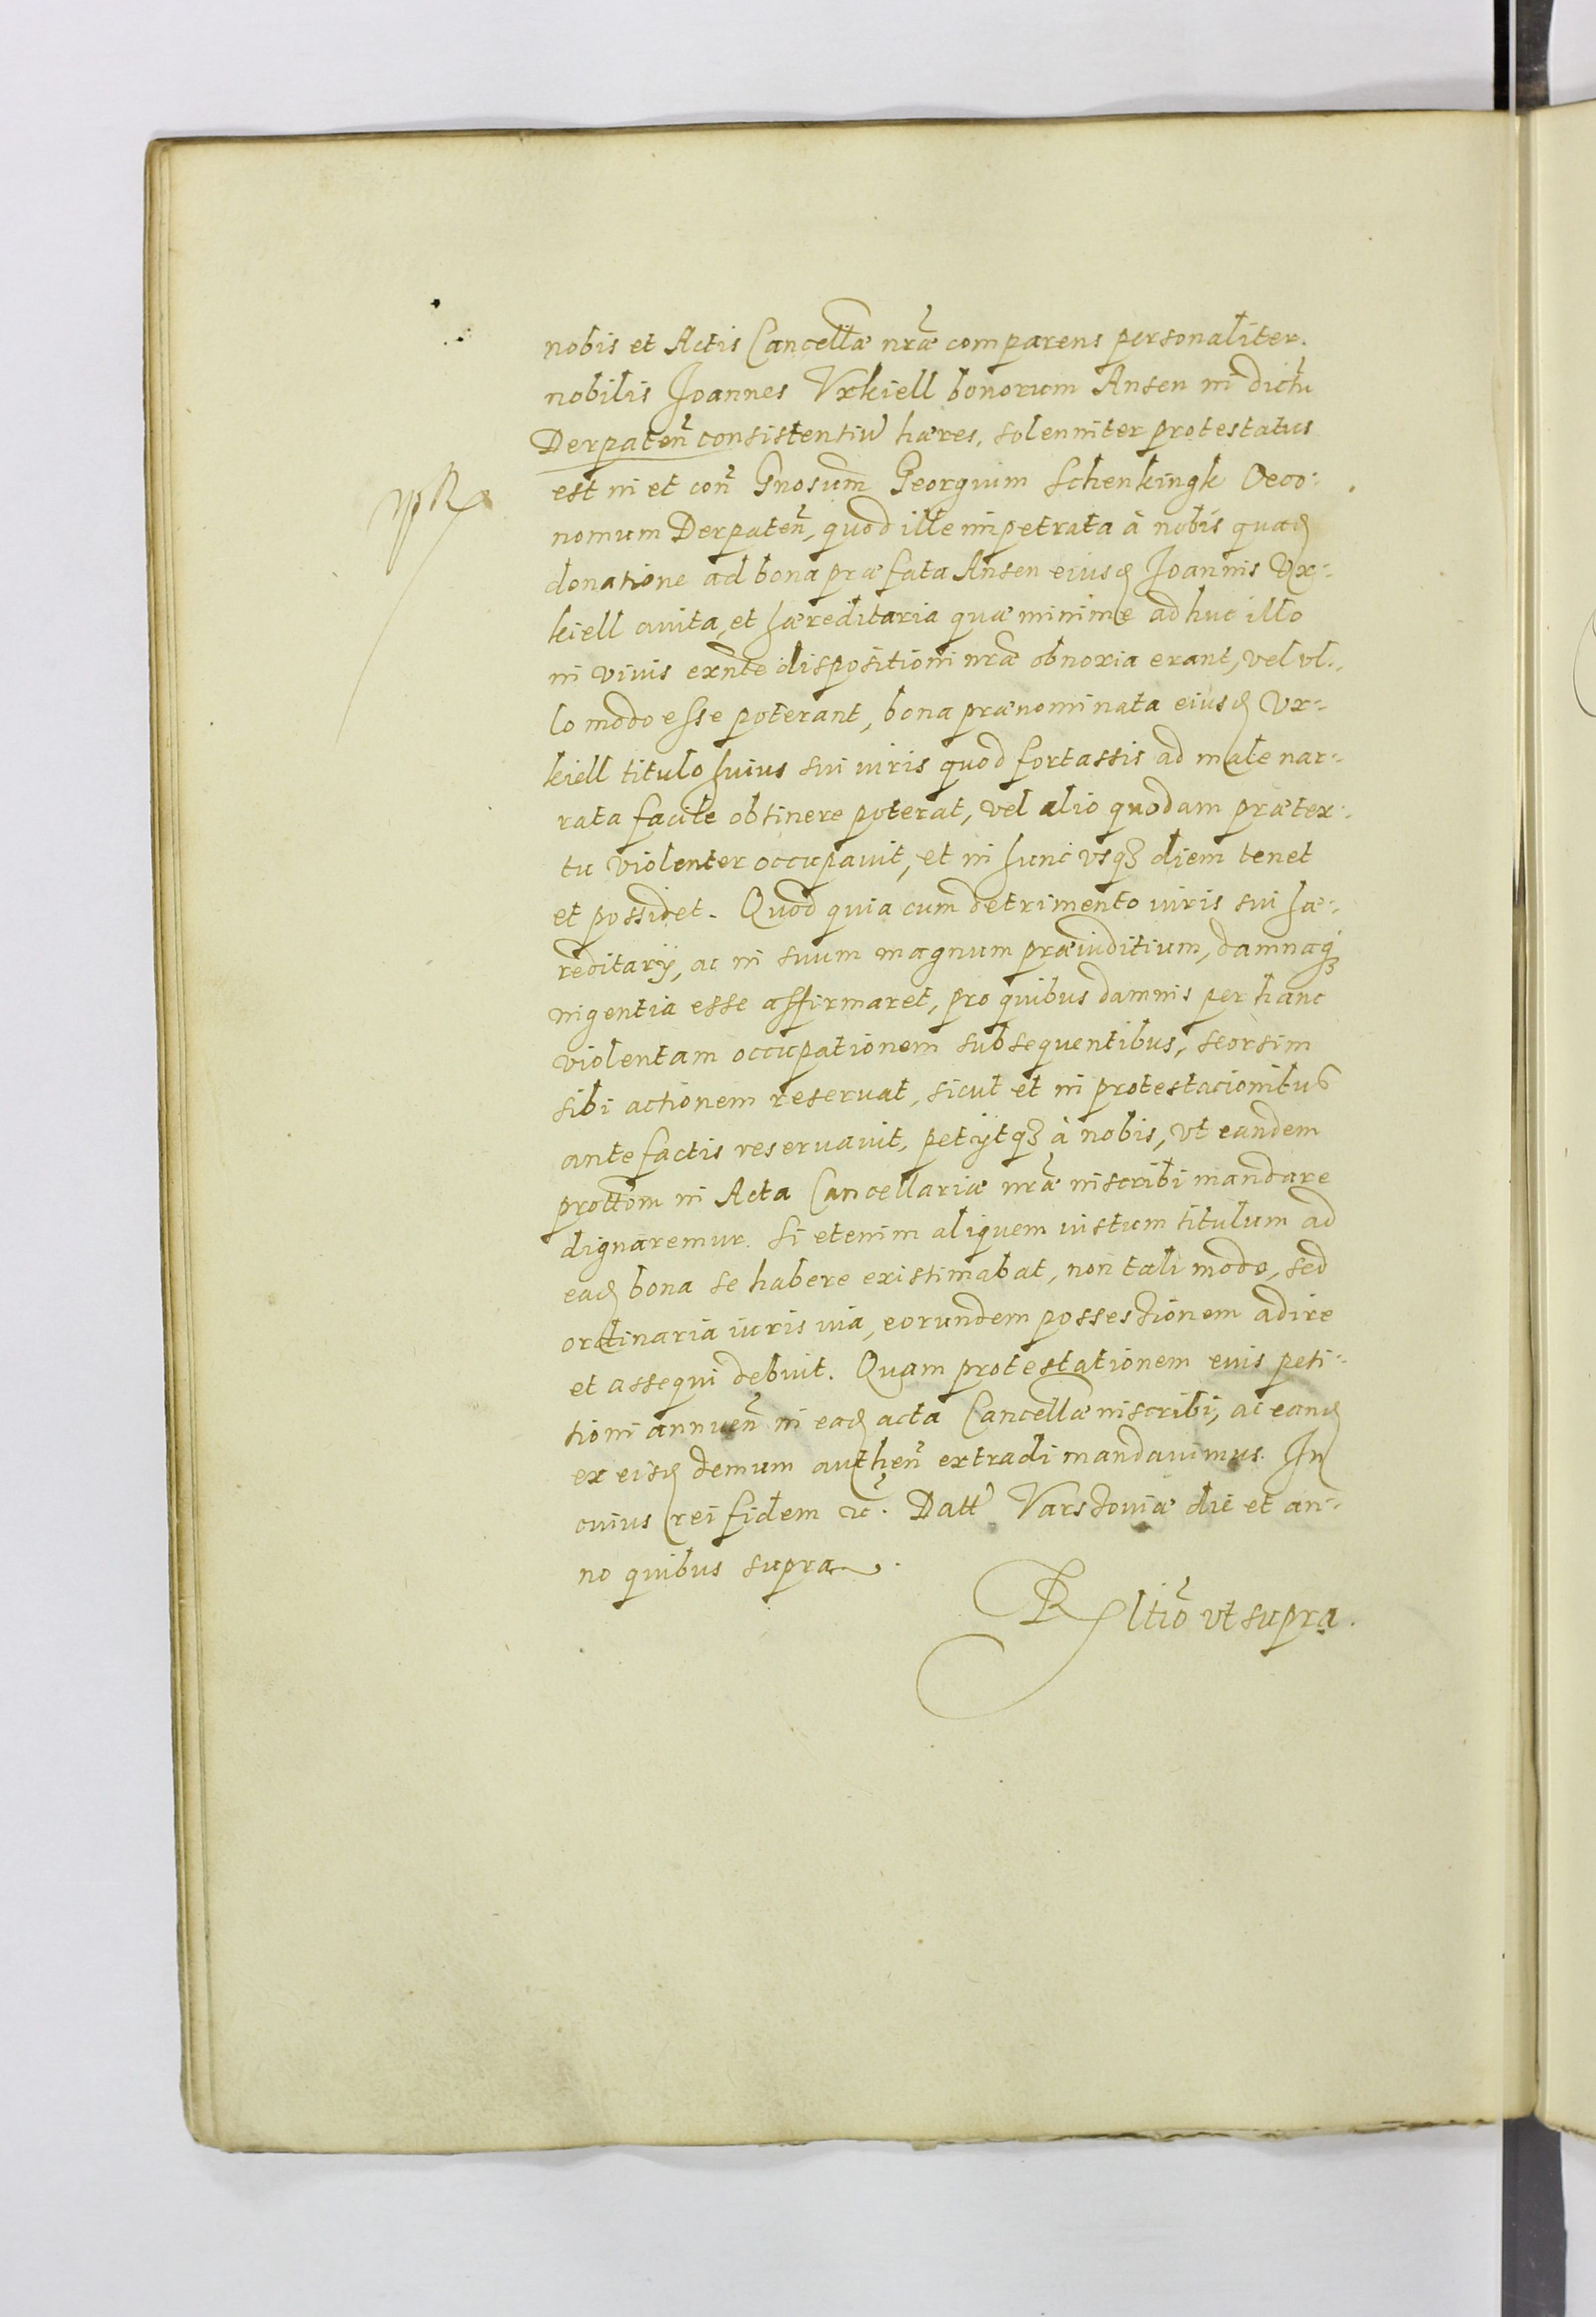 nobis et Actis Cancellæ nr̃æ comparens personaliter.
nobilis Joannes Vxkiell bonorum Ansen in dictu
Derpaten̄ consistentiũ hæres, solenniter protestatus
est in et con̄ Gnosum Georgium Schenkingk Oeco-
nomum Derpaten̄, quod ille impetrata à nobis quad
donatione ad bona præfata Ansen eiusd Joannis Vx-
kiell auita, et hæreditaria quæ minime adhuc illo
in viuis exn̄te dispositioni nr̃æ obnoxia erant, vel vl-
lo modo esse poterant, bona prænominata eiusd Vx-
kiell titulo huius sui iuris quod fortassis ad male nar-
rata facile obtinere poterat, vel alio quodam prætex-
tu violenter occupauit, et in hunc vsq₃ diem tenet
et possidet. Quod quia cum detrimento iuris sui hæ-
reditarÿ, ac in suum magnum præiuditium, damnaq₃
ingentia esse affirmaret, pro quibus damnis per hanc
violentam occupationem subsequentibus, seorsim
sibi actionem reseruat, sicut et in protestacionibus
ante factis reseruauit, petÿtq₃ à nobis, vt eandem
prottom in Acta Cancellariæ nr̃æ inscribi mandare
dignaremur. Si etenim aliquem iustum titulum ad
ead bona se habere existimabat, non tali modo, sed
ordinaria iuris via, eorundem possessionem adire
et assequi debuit. Quam protestationem euis peti-
tioni annuen̄ in ead acta Cancellæ inscribi, ac eand
ex eisd demum authen̄ extradi mandauimus. In
cuius rei fidem etc. Datt Varsсhouiæ die et an-
no quibus supra.
Rltio vt supra.